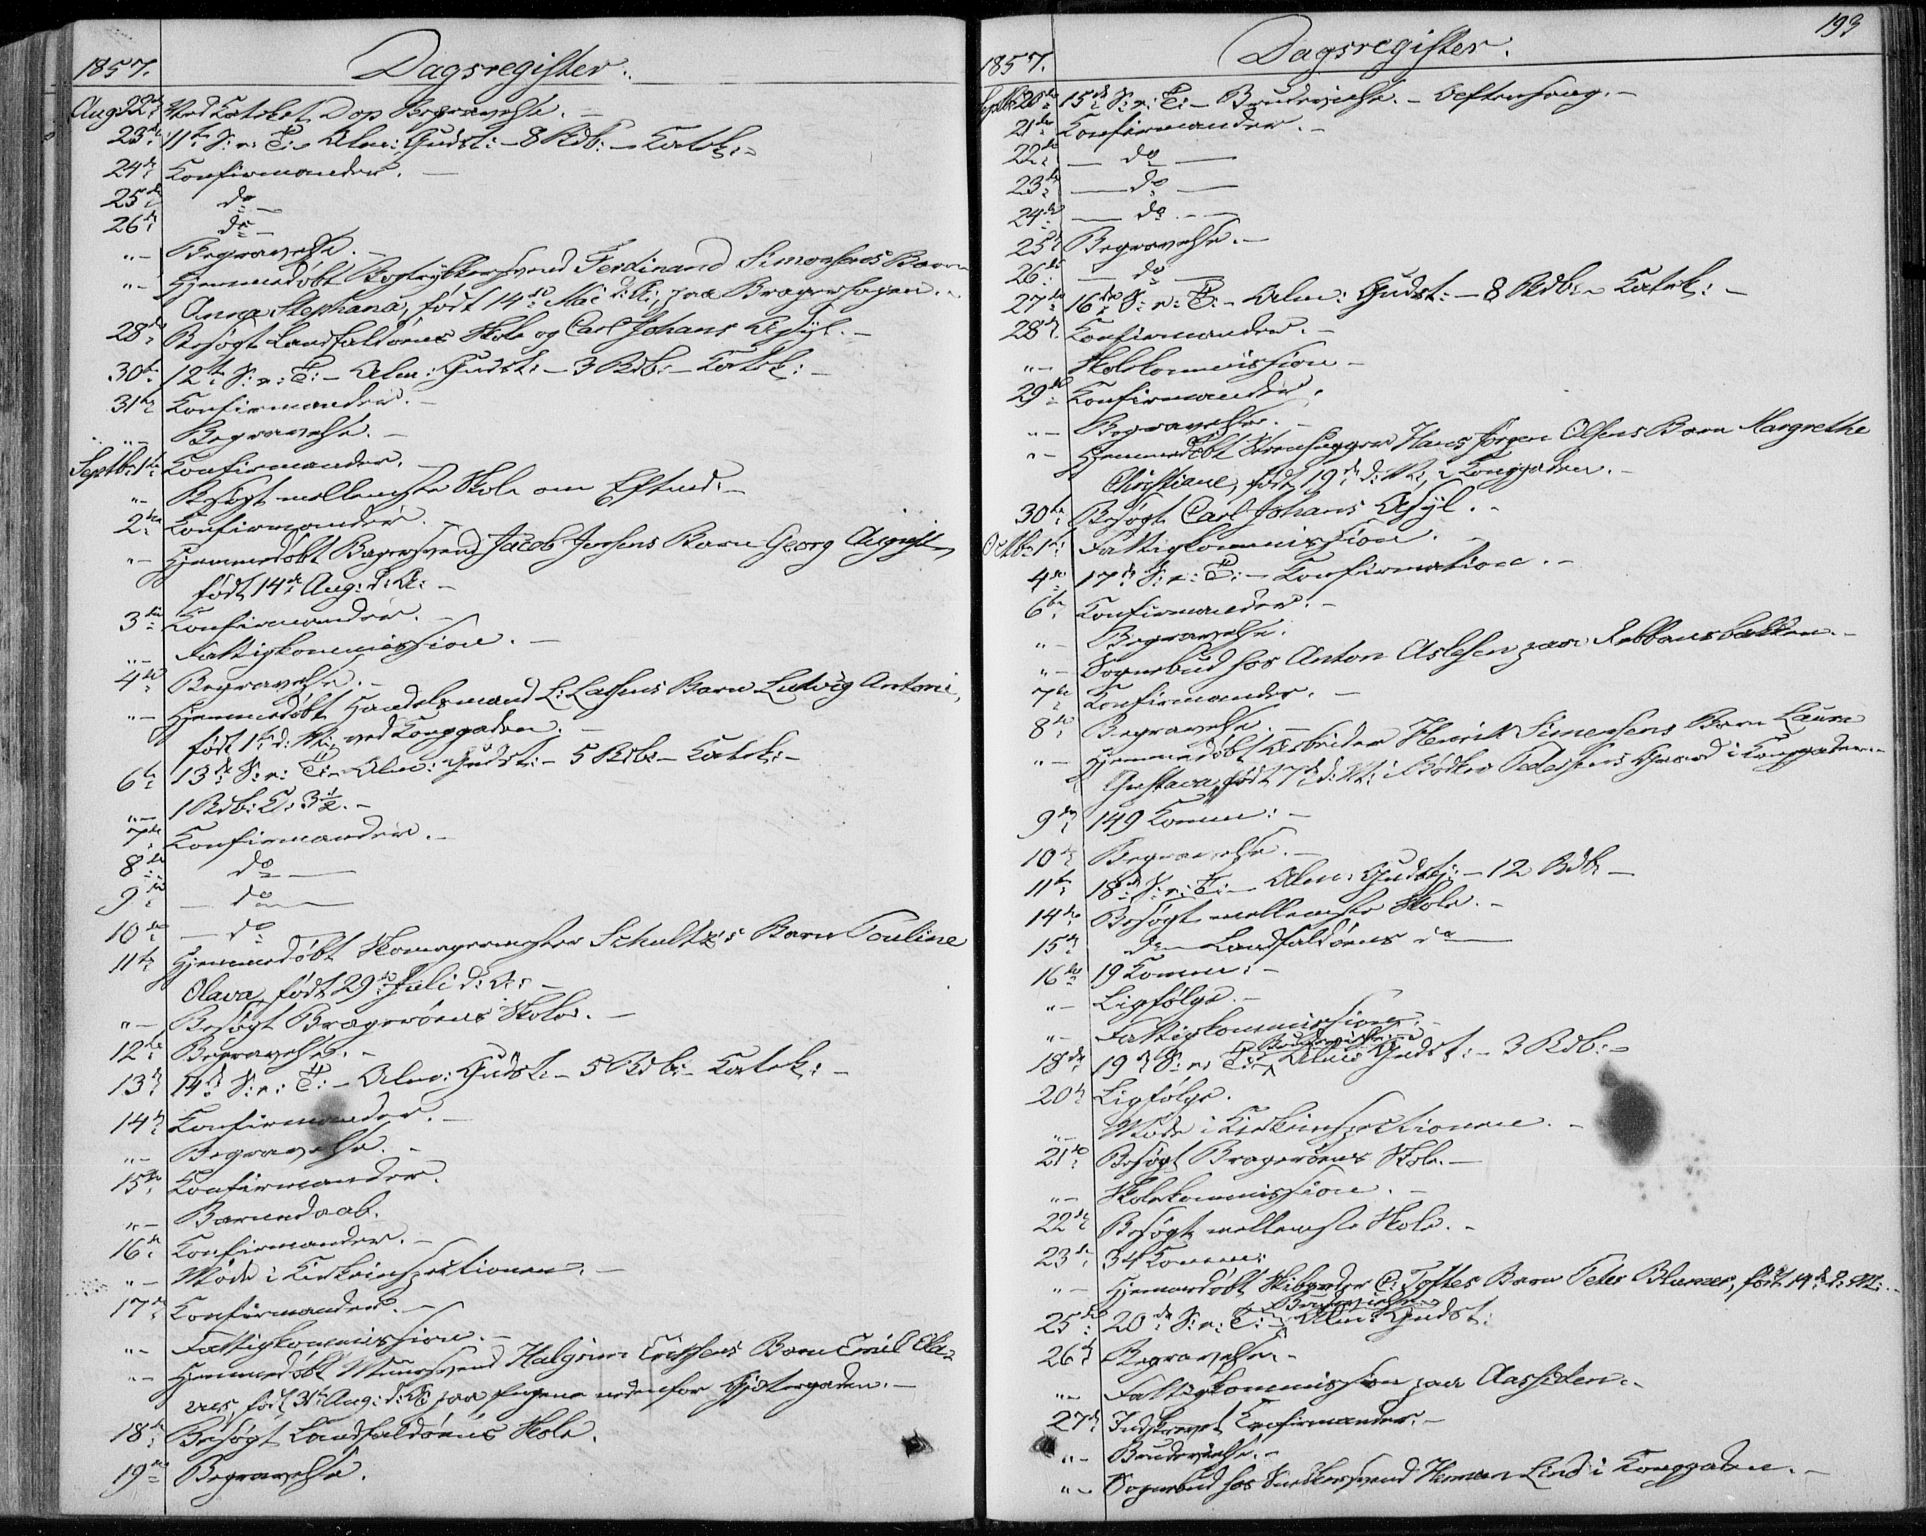 1857. Dagsregister.
Aug. 22de Begravelse. –
23de 11te S: e: T: – Alm: Gudst: – 8 Rdb: – Katek: –
24de Konfirmander. –
25de do –
26de do –
" – Begravelse. –
" – Hjemmedøbt Bogtrykkersvend Ferdinand Simonsens Barn
Anna Stephana, født 14de Mai d: A:, paa Bragerhagen. –
28de Besøgt Landfaldøens Skole og Carl Johans Asÿl. –
30te 12te S: e: T: – Alm: Gudst: – 3 Rdb: – Katek: –
31te Konfirmander. –
" – Begravelse. –
Septbr. 1te Konfirmander. –
" – Besøgt mellemste Skole om Eftermd. –
2den Konfirmander. –
" – Hjemmedøbt Bagersvend Jacob Jensens Barn Georg August,
født 14de Aug: d: A: –
3die Konfirmander. –
" – Fattigkommission. –
4de Begravelse. –
" – Hjemmedøbt Handelsmand L: Larsens Barn Ludvig Antoni,
født 1te d: M:, ved Konggaden. –
6te 13de S: e: T: – Alm: Gudst: – 5 Rdb: – Katek: –
" – 1 Rdb: Kl. 3½. –
7de Konfirmander. –
8de do –
9de – do –
10de – do
11te Hjemmedøbt Skomagermester Schultz's Barn Pouline
Olava, født 29de Juli d: A: –
" – Besøgt Bragerøens Skole. –
12te Begravelse. –
13de 14de S: e: T: – Alm: Gudst: – 5 Rdb: – Katek: –
14de Konfirmander. –
" – Begravelse. –
15de Konfirmander.
" – Barnedaab.
16de Konfirmander. –
" – Møde i Kirkeinspektionen. –
17de Konfirmander. –
" – Fattigkommission. –
" – Hjemmedøbt Muursvend Halgrim Barn Emil
født 31te Aug: d: A: paa nedenfor Gjetergaden. –
18de Besøgt Landfaldøens Skole.
19de Begravelse.
193
1857. Dagsregister.
Septbr. 20de 15de S: e: T: – Brudevielse. – Aftensang. –
21de Konfirmander. –
22de – do –
23de – do –
24de – do –
25de Begravelse. –
26de – do –
27de 16de S: e: T: – Alm: Gudst: – 8 Rdb: – Katek: –
28de Konfirmander. –
" – Skolekommission –
29de Konfirmander.
" – Begravelse. –
" – Hjemmedøbt Steenhugger Hans Jørgen Olsens Barn Margrethe
Christiane, født 19de d: M:, i Konggaden. –
30te Besøgt Carl Johans Asÿl. –
Octbr. 1te Fattigkommission. –
4de 17de S: e: T: – Konfirmation. –
6te Konfirmander. –
" – Begravelse.
" – Sognebud hos Anton Aslesen paa Rebbansbakken. –
7de Konfirmander. –
8de Begravelse. –
" – Hjemmedøbt Arbeider Henrik Simensens Barn Laura
Gustava, født 7de d: M: i Bødker Pedersens Gaard i Konggaden. –
9de 149 Komm: –
10de Begravelse. –
11te 18de S: e: T: – Alm: Gudstj: – 12 Rdb –
14de Besøgt mellemste Skole. –
15de do Landfaldøens do –
16de 19 Komm: –
" – Ligfølge. –
" – Fattigkommission. –
Brudevielse –
18de 19de S: e: T: – Alm: Gudst: – 3 Rdb: –
20de Ligfølge.
" – Møde i Kirkeinspektionen. –
21de Besøgt Bragerøens Skole. –
" – Skolekommission. –
22de Besøgt mellemste Skole. –
23de 34 Komm:
" – Hjemmedøbt Skibsreder C: Toftes Barn Peter født 14de d: M: –
Brudevielse
25de 20de S: e: T: – Alm: Gudst:
26de Begravelse –
" – Fattigkommission paa Aassiden. –
27de Indskrevet Konfirmander. –
" – Brudevielse. –
" – Sognebud hos Snedkersvend Herman Lind i Konggaden. –